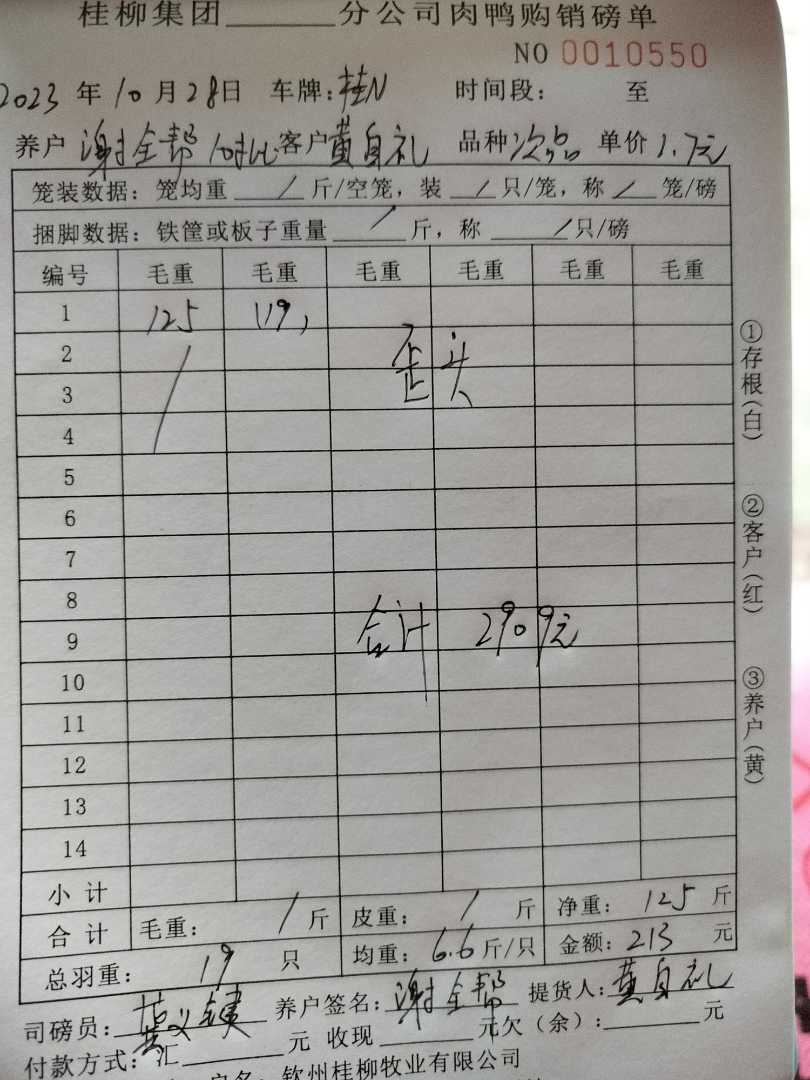 桂柳集团______分公司肉鸭购销磅单
NO 0010550
2023年10月28日 车牌:桂N 时间段: 至
养户 谢全帮 客户黄自礼 品种次品 单价1.7元
笼装数据: 笼均重 / 斤/空笼, 装 / 只/笼, 称 / 笼/磅
捆脚数据: 铁筐或板子重量 / 斤, 称 / 只/磅
编号 毛重 毛重 毛重 毛重 毛重 毛重
1 125 (19)
2 歪头
3
4
5
6
7
8
9 合计 2909元
10
11
12
13
14
小计
合计 毛重: / 斤 皮重: / 斤 净重: 125 斤
总羽重: 19 只 均重: 6.6 斤/只 金额: 213 元
司磅员: 养户签名: 谢全帮 提货人: 黄自礼
付款方式: 汇______元 收现______元欠(余):______元
户名: 钦州桂柳牧业有限公司
①存根(白)
②客户(红)
③养户(黄)